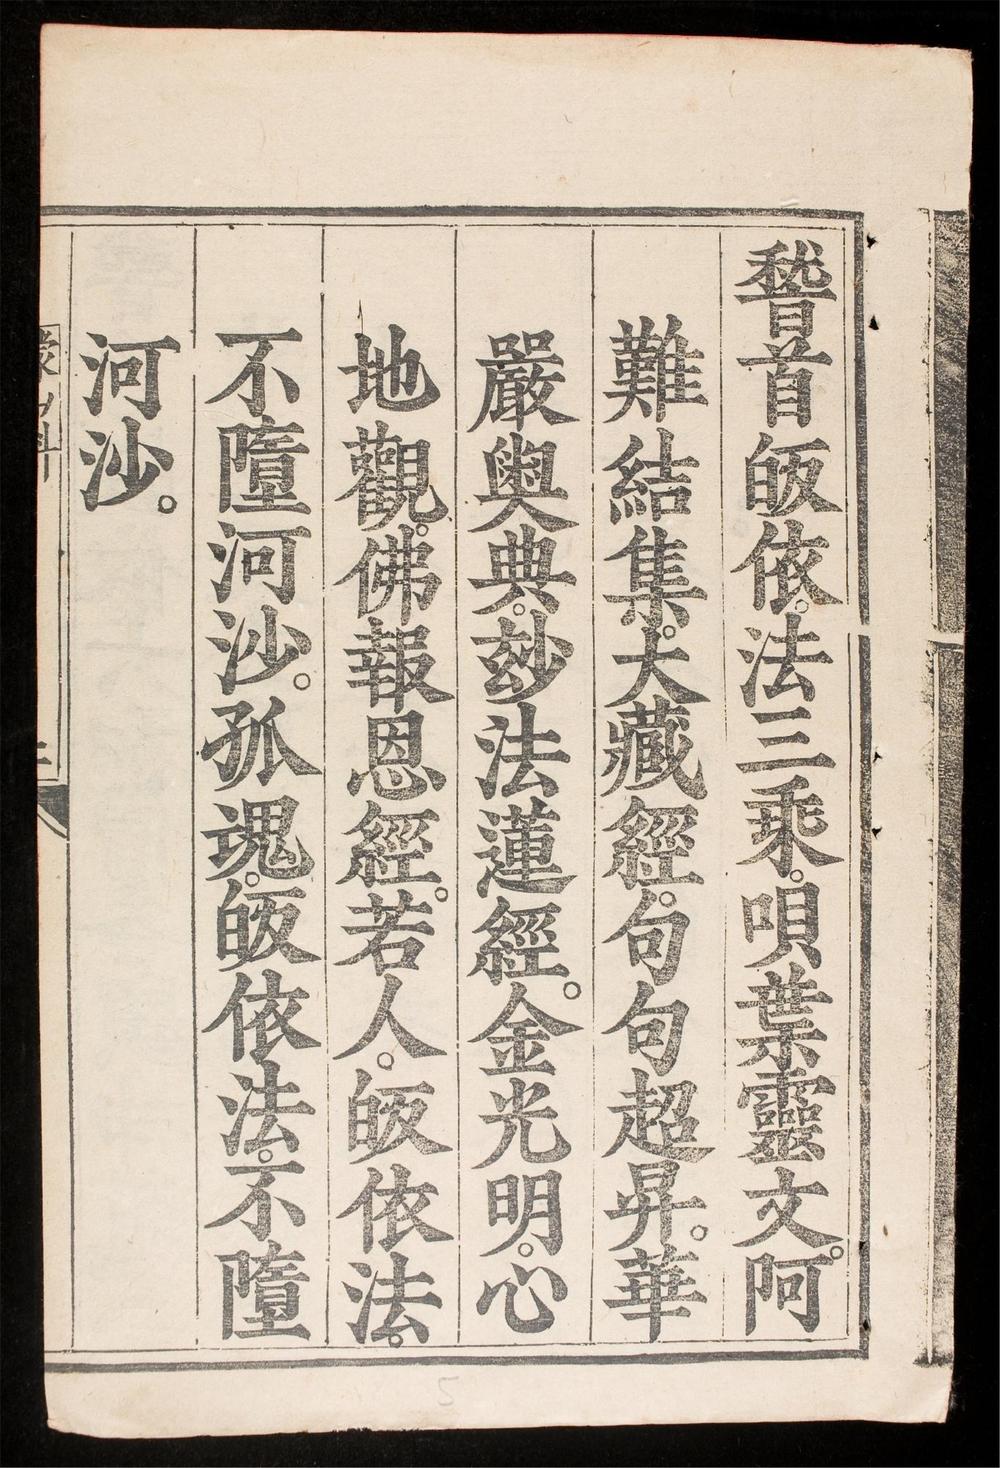 稽首皈依。法三乘。唄葉靈文。阿
難結集。大藏經。句句超昇。華
嚴奧典。玅法蓮經。金光明。心
地觀。佛報恩經。若人。皈依法。
不墮河沙。孤魂。皈依法。不墮
河沙。